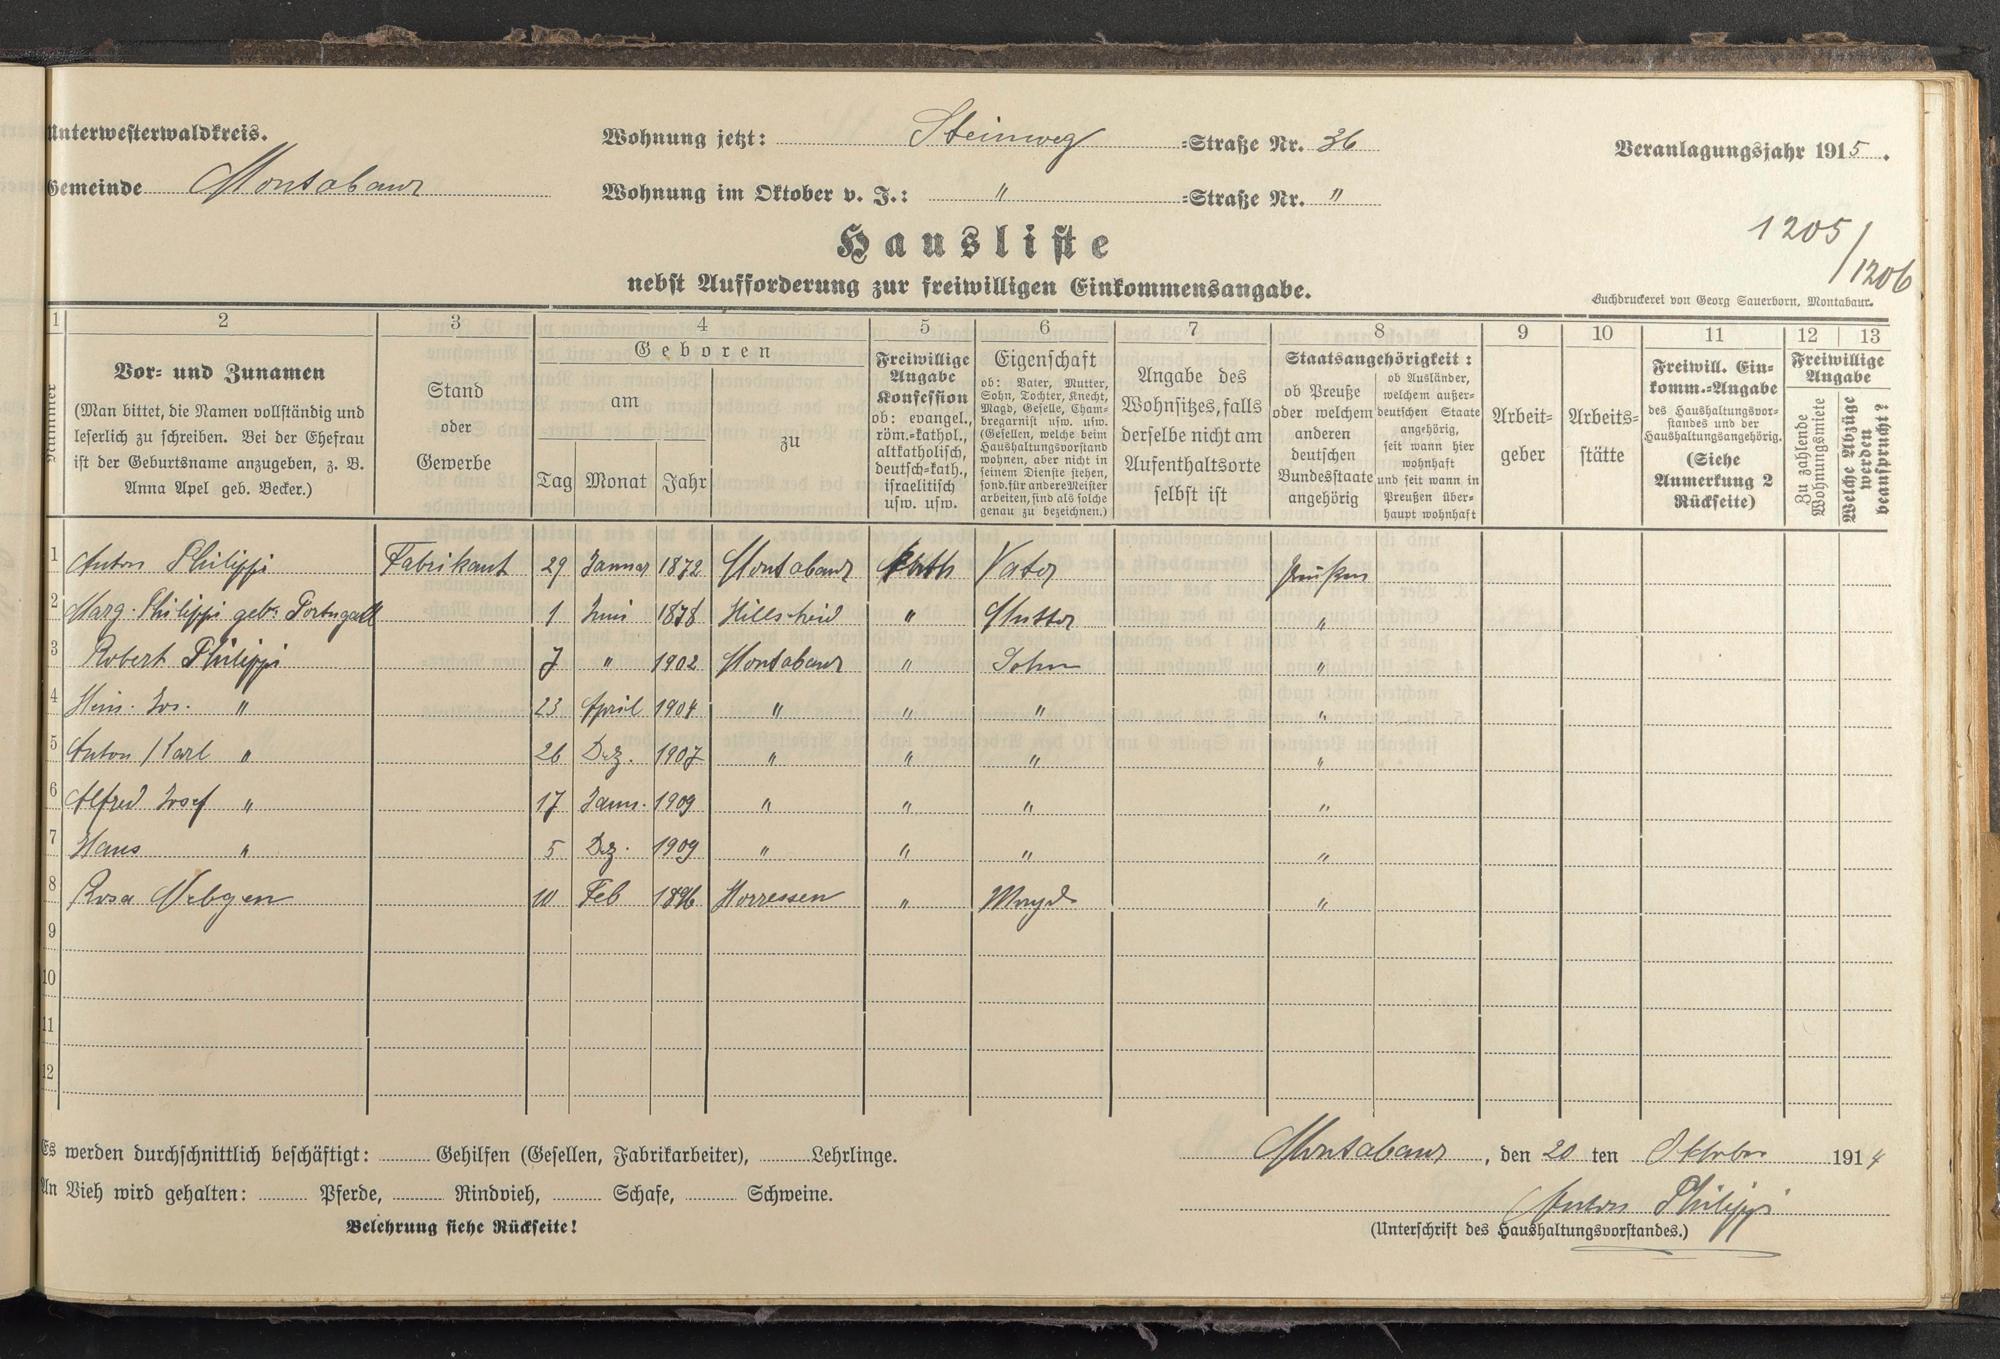 Unterwesterwaldkreis.
Gemeinde Montabaur
Wohnung jetzt: Steinweg =Straße Nr. 36
Wohnung im Oktober v. J.: " =Straße Nr. "
Veranlagungsjahr 1915.
Hausliste
nebst Aufforderung zur freiwilligen Einkommensangabe.
1205/1206
Buchdruckerei von Georg Sauerborn, Montabaur.
1 2 3 4 5 6 7 8 9 10 11 12 13
Nummer
Vor= und Zunamen
(Man bittet, die Namen vollständig und
leserlich zu schreiben. Bei der Ehefrau
ist der Geburtsname anzugeben, z. B.
Anna Apel geb. Becker.)
Stand
oder
Gewerbe
Geboren
am
zu
Tag Monat Jahr
Freiwillige
Angabe
Konfession
ob: evangel.,
röm.=kathol.,
altkatholisch,
deutsch=kath.,
israelitisch
usw. usw.
Eigenschaft
ob: Vater, Mutter,
Sohn, Tochter, Knecht,
Magd, Geselle, Cham-
bregarnist usw. usw.
(Gesellen, welche beim
Haushaltungsvorstand
wohnen, aber nicht in
seinem Dienste stehen,
sond. für andere Meister
arbeiten, sind als solche
genau zu bezeichnen.)
Angabe des
Wohnsitzes, falls
derselbe nicht am
Aufenthaltsorte
selbst ist
Staatsangehörigkeit:
ob Preuße
oder welchem
anderen
deutschen
Bundesstaate
angehörig
ob Ausländer,
welchem außer-
deutschen Staate
angehörig,
seit wann hier
wohnhaft
und seit wann in
Preußen über-
haupt wohnhaft
Arbeit-
geber
Arbeits-
stätte
Freiwill. Ein-
komm.=Angabe
des Haushaltungsvor-
standes und der
Haushaltungsangehörig.
(Siehe
Anmerkung 2
Rückseite)
Freiwillige
Angabe
Zu zahlende
Wohnungsmiete
Welche Abzüge
werden
beansprucht?
1 Anton Philippi Fabrikant 29 Januar 1872 Montabaur Kath Vater Preußen
2 Marg. Philippi geb. Portugall 1 Juni 1878 Hillscheid " Mutter "
3 Robert Philippi 7 " 1902 Montabaur " Sohn "
4 Hein. Jos. " 23 April 1904 " " " "
5 Anton / Karl " 26 Dez. 1907 " " " "
6 Alfred Josef " 17 Janu. 1909 " " " "
7 Hans " 5 Dez. 1909 " " " "
8 Rosa 10 Feb 1896 Horressen " Magd "
9
10
11
12
Es werden durchschnittlich beschäftigt: Gehilfen (Gesellen, Fabrikarbeiter), Lehrlinge.
An Vieh wird gehalten: Pferde, Rindvieh, Schafe, Schweine.
Belehrung siehe Rückseite!
Montabaur, den 20 ten Oktober 1914
Anton Philippi
(Unterschrift des Haushaltungsvorstandes.)